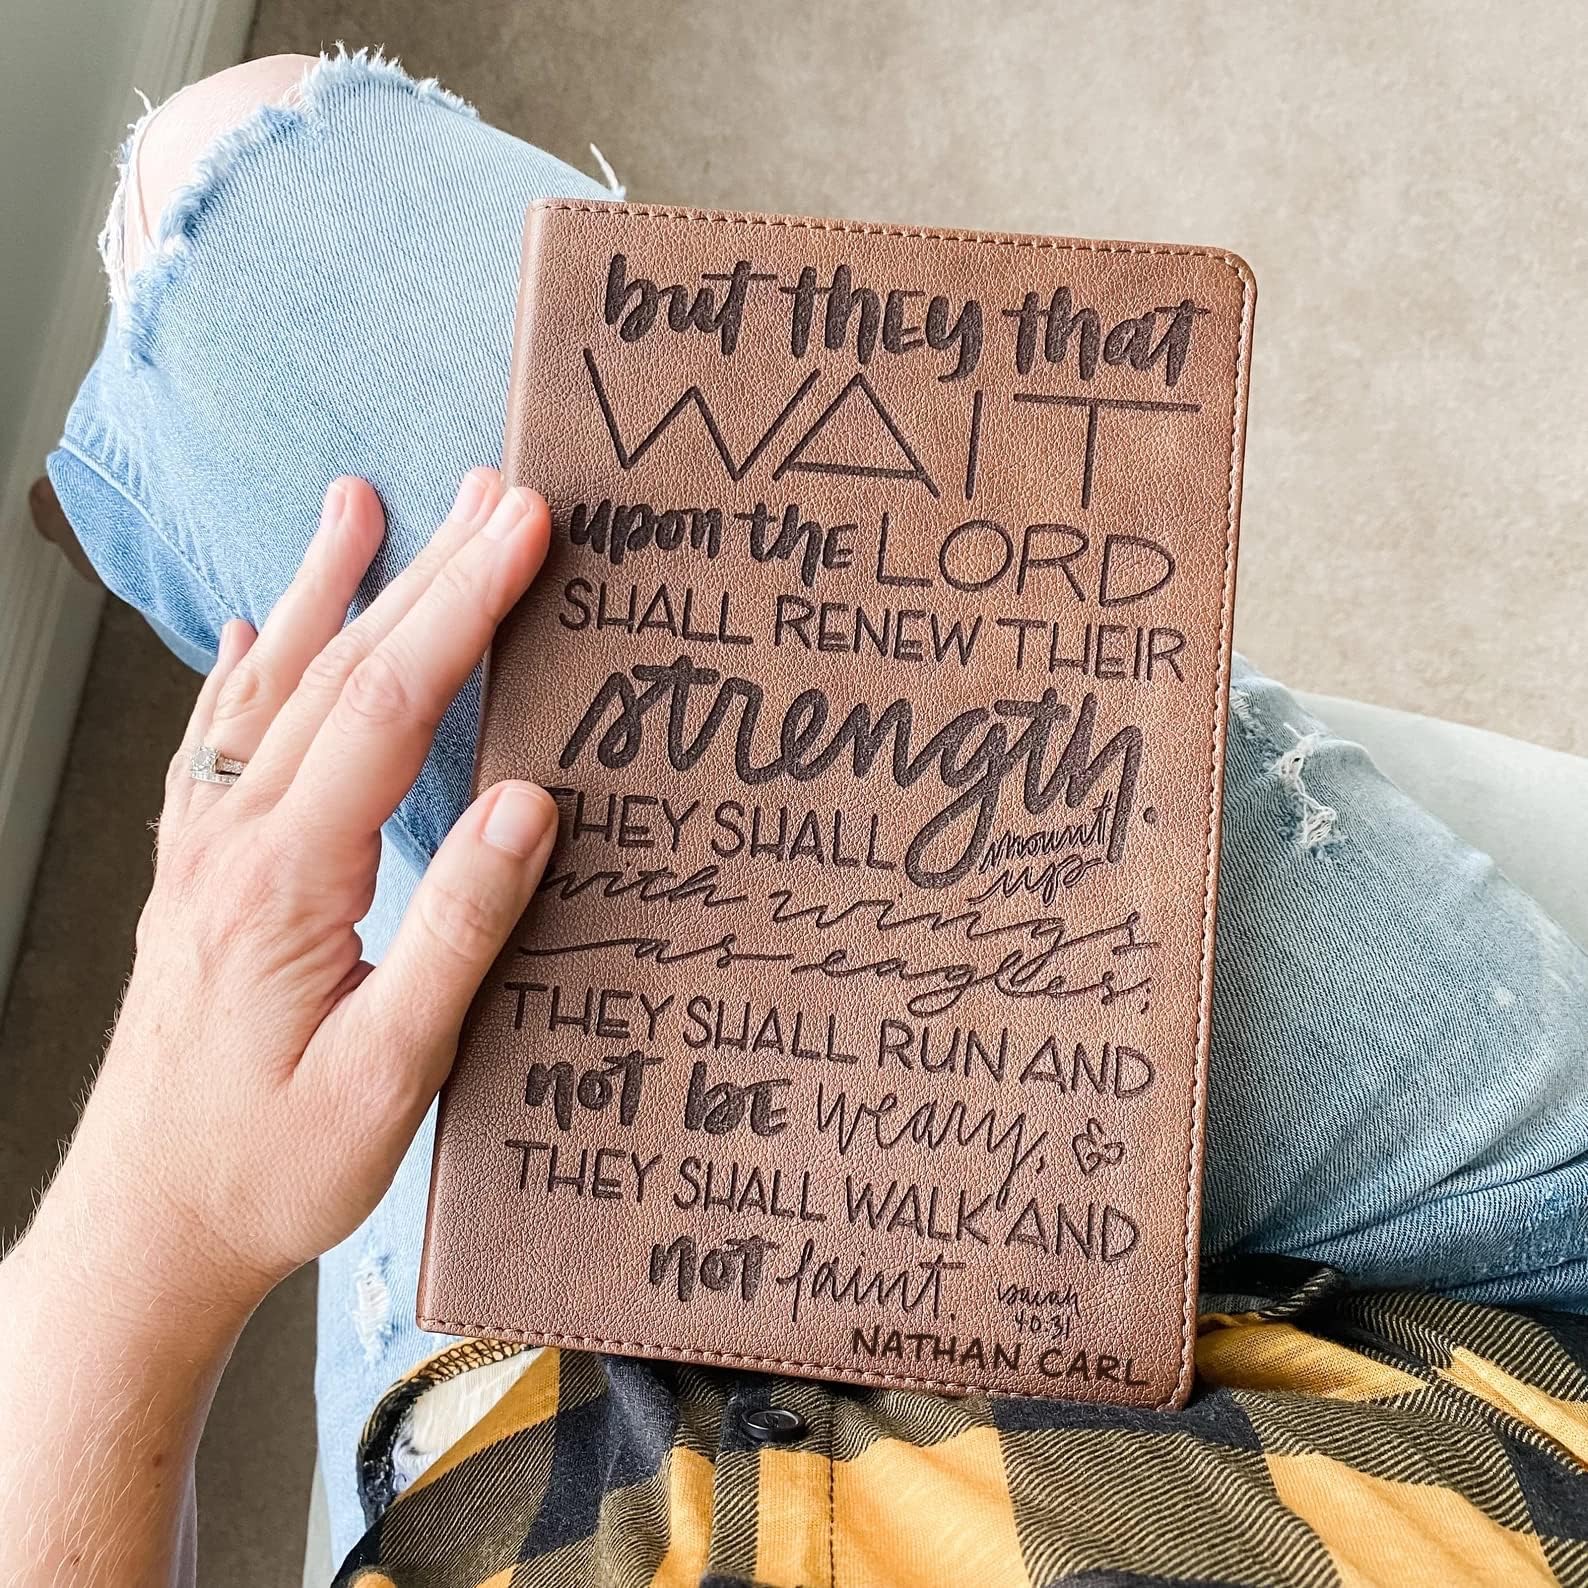 but thEy that
WAIT
upon thE LORD
SHALL RENEW THEIR
strength.
THEY SHALL mount up
with wings
as eagles;
THEY SHALL RUN AND
not BE weary, &
THEY SHALL WALK AND
not faint. isaiah
40:31
NATHAN CARL